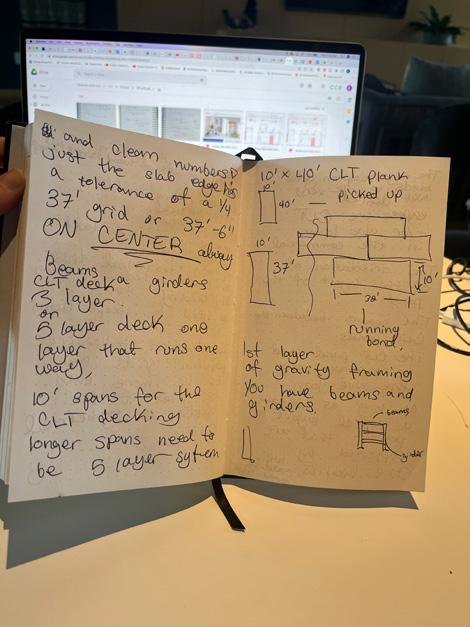 and clean numbers
just the slab edge has
a tolerance of a 1/4
37' grid or 37'-6"
ON CENTER always
Beams
CLT deck a girders
3 layer.
or
5 layer deck one
layer that runs one
way,
10' spans for the
CLT decking
longer spans need to
be 5 layer sytem
10' x 40' CLT plank
picked up
10'
40'
10'
37'
10'
running
bond.
1st layer
of gravity framing
you have beams and
girders.
beams
girder